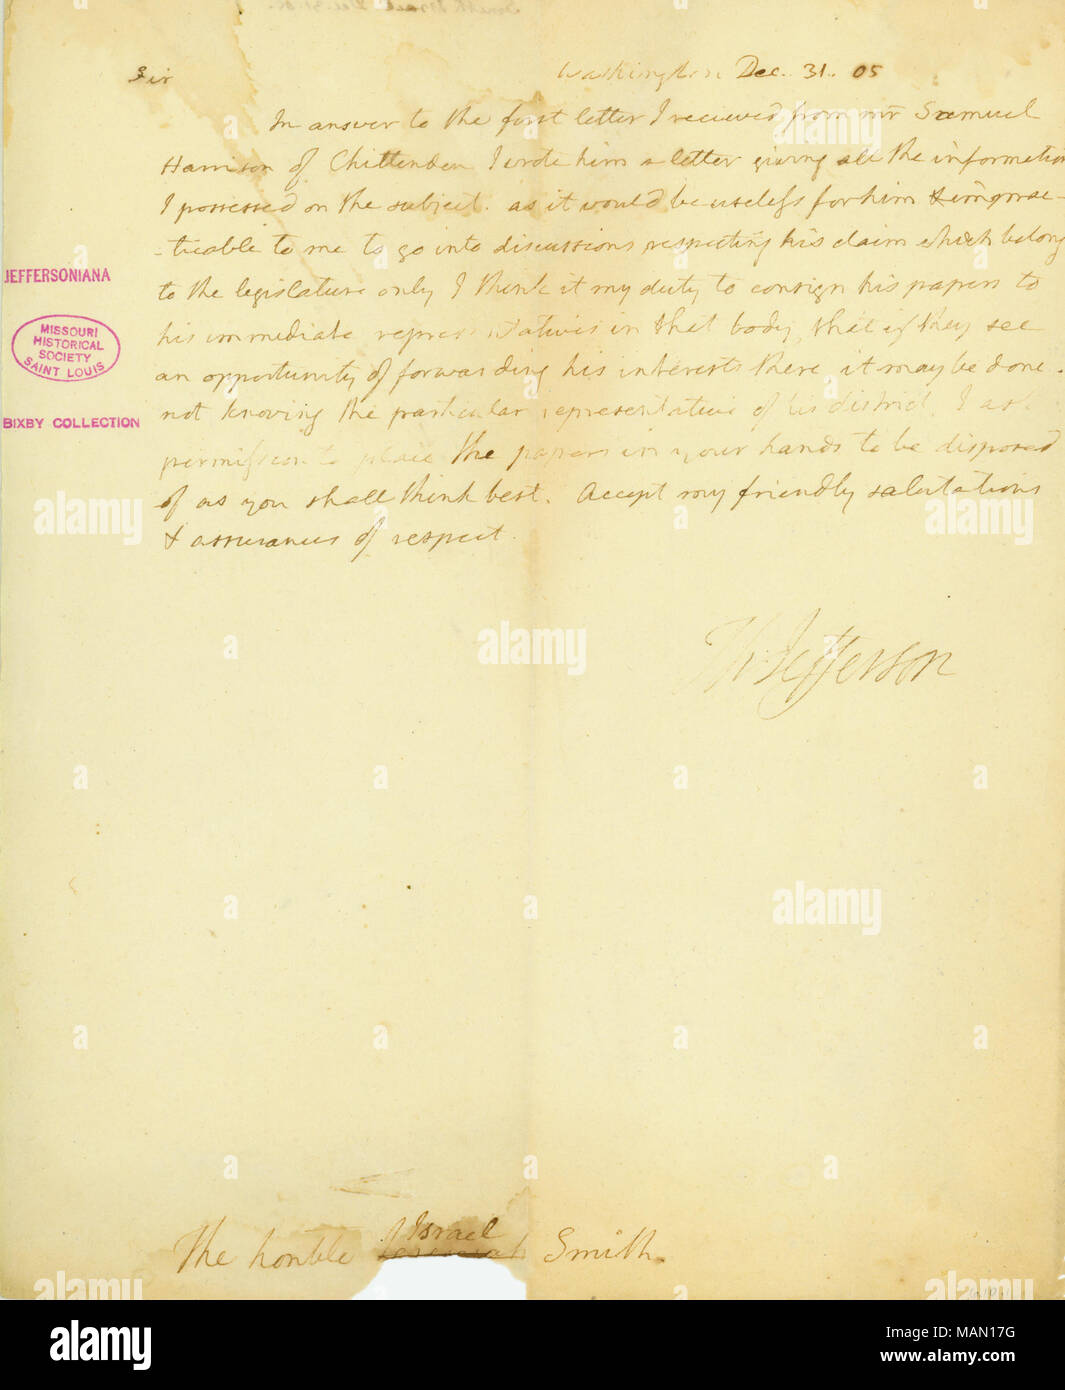 Sir
Washington Dec. 31. 05
In answer to the first letter I recieved from mr Samuel
Harrison of Chittenden I wrote him a letter giving all the information
I possessed on the subject. as it would be useless for him & imprac-
-ticable to me to go into discussions respecting his claim which belong
to the legislature only, I think it my duty to consign his papers to
his immediate representatives in that body, that if they see
an opportunity of forwarding his interests there it may be done.
not knowing the particular representative of his district, I ask
permission to place the papers in your hands to be disposed
of as you shall think best. Accept my friendly salutations
& assurances of respect.
Th: Jefferson
The honble Israel Smith.
JEFFERSONIANA
MISSOURI
HISTORICAL
SOCIETY
SAINT LOUIS
BIXBY COLLECTION
alamy
alamy
alamy
alamy
alamy
alamy
alamy
alamy
a
a
a
a
a
alamy
Image ID: MAN17G
www.alamy.com